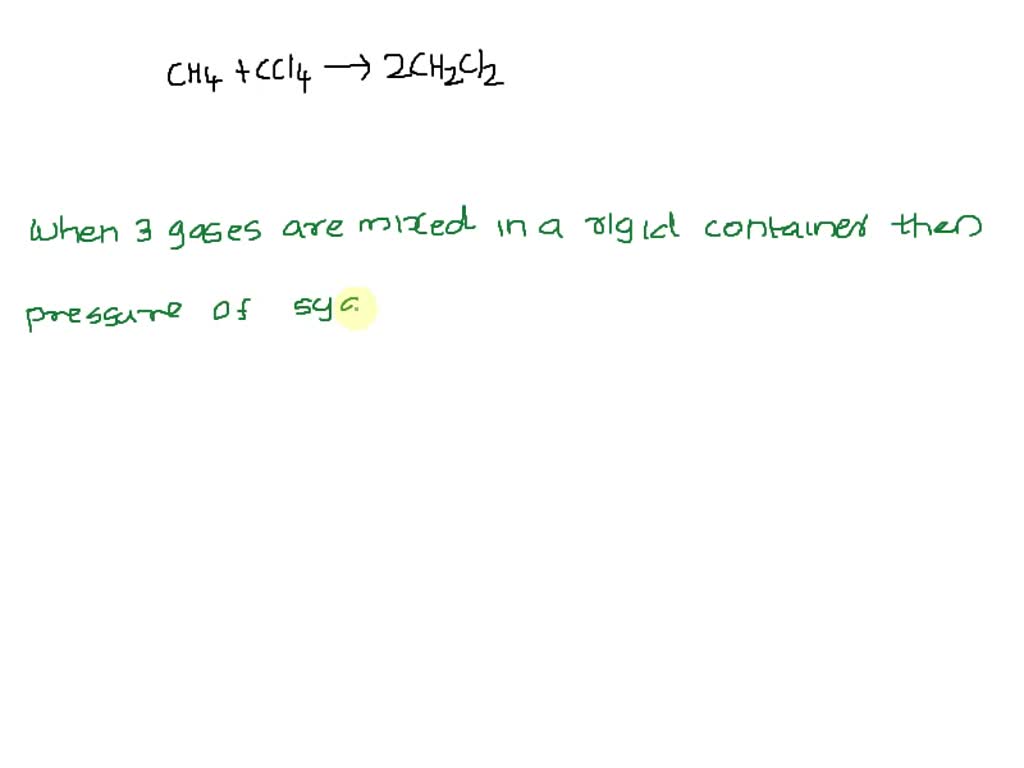 CH4 + CCl4 → 2CH2Cl2
when 3 gases are mixed in a rigid container then
pressure of sys